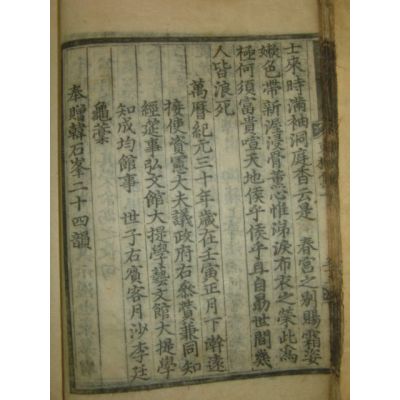 士來時滿袖洞庭香云是 春宮之別賜霜姿
嫩色帶新渥浸骨薰心惟涕淚布衣之榮此爲
極何須富貴喧天地侯乎侯乎且自勗世間幾
人皆浪死
萬曆紀元三十年歲在壬寅正月下澣遠
接使資憲大夫議政府右叅贊兼同知
經筵事弘文館大提學藝文館大提學
知成均館事 世子右賓客月沙李廷
龜藁
奉贈韓石峯二十四韻